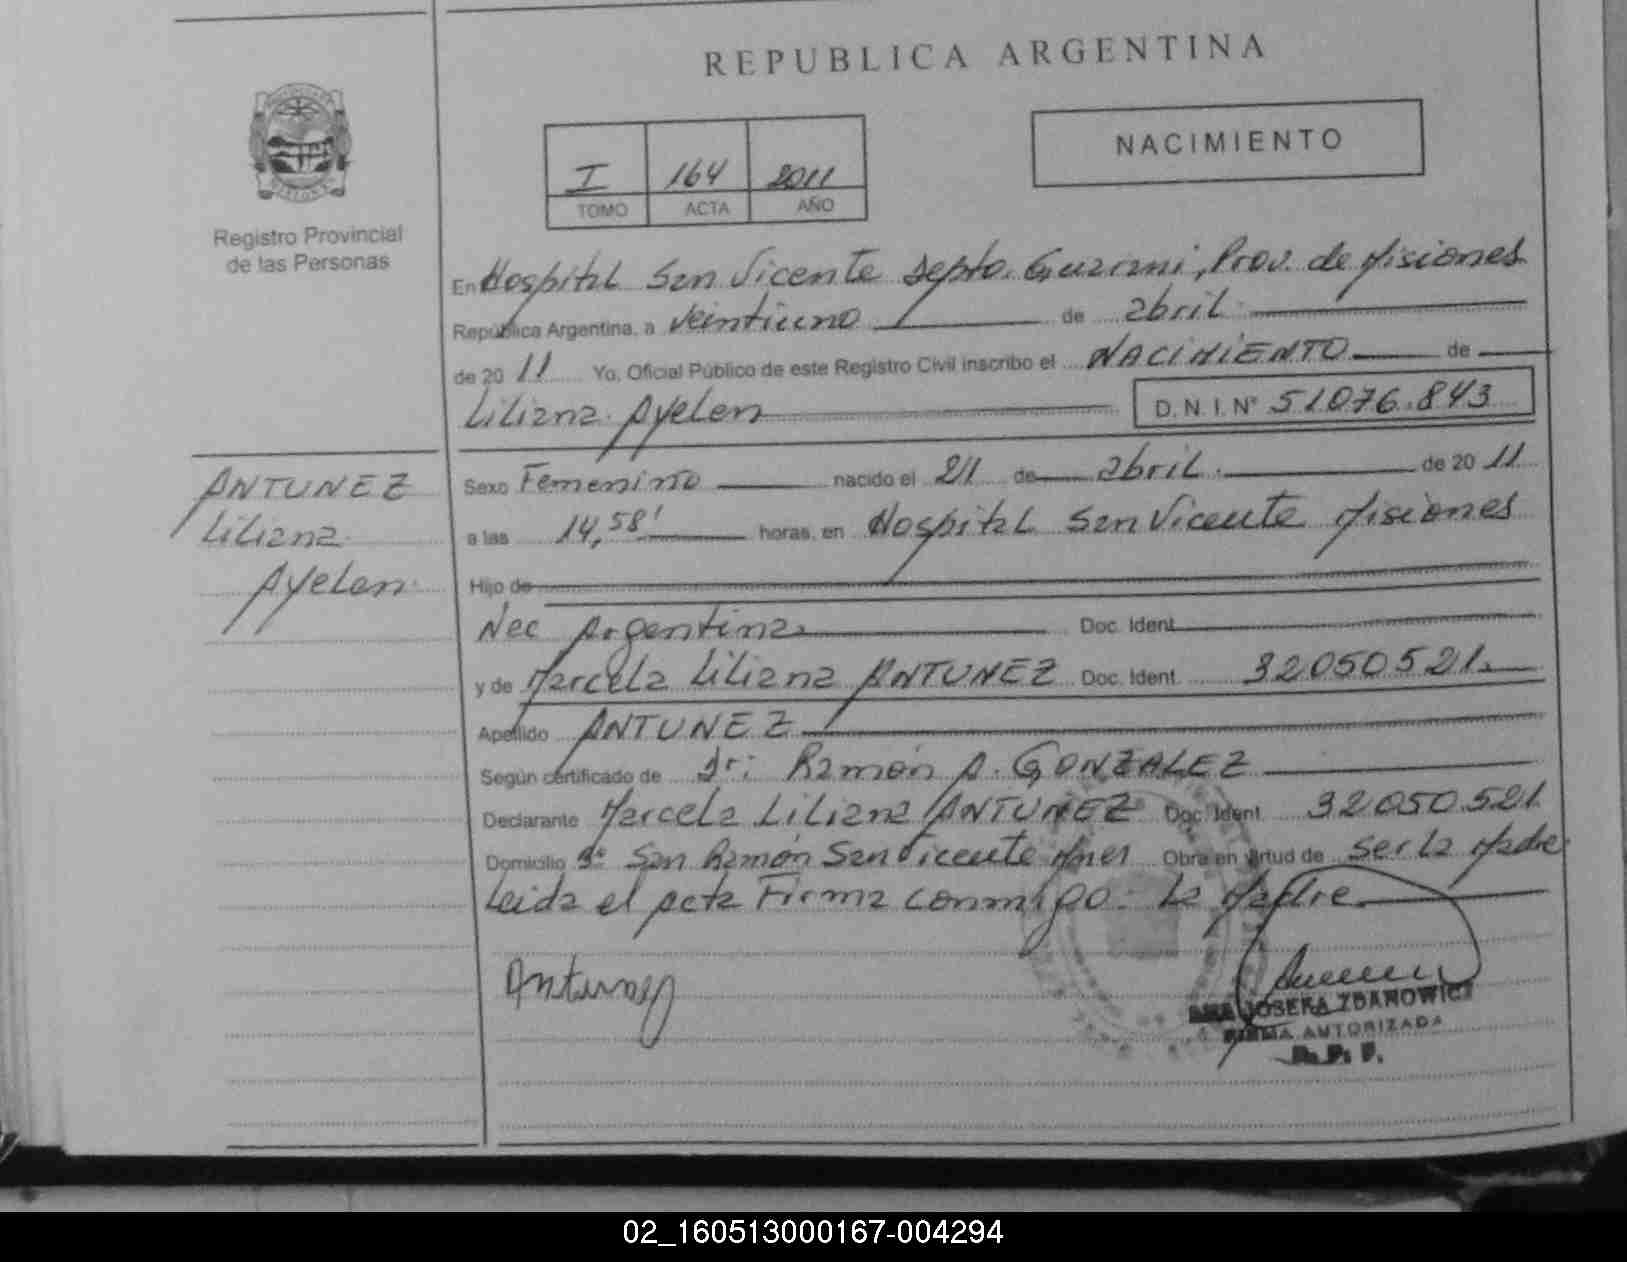 REPUBLICA ARGENTINA
NACIMIENTO
I 164 2011
TOMO ACTA AÑO
Registro Provincial
de las Personas
En Hospital San Vicente Depto. Guarani, Prov. de Misiones
República Argentina, a veintiuno de abril
de 20 11 Yo, Oficial Público de este Registro Civil inscribo el NACIMIENTO de
Liliana Ayelen D.N.I. Nº 51076.843
ANTUNEZ
Liliana
Ayelen
Sexo Femenino nacido el 21 de abril de 20 11
a las 14,58' horas, en Hospital San Vicente Misiones
Hijo de
Nac Argentina Doc. Ident.
y de Marcela Liliana ANTUNEZ Doc. Ident. 32050521
Apellido ANTUNEZ
Según certificado de Dr: Ramón A. GONZALEZ
Declarante Marcela Liliana ANTUNEZ Doc. Ident. 32050521
Domicilio Bº San Ramón San Vicente Mnes Obra en virtud de ser la Madre
Leida el Acta Firma conmigo: La Madre
Antunez
JOSEFA ZDANOWICZ
FIRMA AUTORIZADA
R. P. P.
02_160513000167-004294